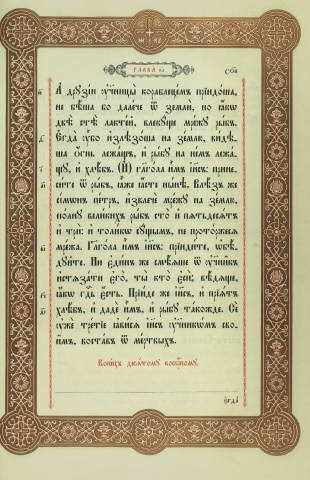 ГЛАВА
А друзі́и ᲂу҆чн҃цы̀ корабле́мъ прїидо́ша,
не бѣ́ша бо дале́че ѿ землѝ, но ꙗ҆́кѡ
двѣ́ стѣ̀ лакте́й, влеку́ще мре́жу ры́бъ.
Є҆гда̀ ᲂу҆́бо и҆злѣзо́ша на зе́млю, ви́дѣ-
ша ѻ҆́гнь лежа́щь, и҆ ры́бу на не́мъ лежа́-
щу, и҆ хлѣ́бъ. Гл҃го́ла и҆̀мъ і҆и҃съ: прине-
си́те ѿ ры́бъ, ꙗ҆̀же ꙗ҆́сте нн҃ѣ. Влѣ́зъ же
сі́мѡнъ пе́тръ, и҆звлечѐ мре́жу на зе́млю,
по́лну вели́кихъ ры́бъ сто̀ и҆ пѧтьдесѧ́тъ
и҆ трѝ: и҆ толи́кѡ су́щымъ, не прото́ржесѧ
мре́жа. Гл҃го́ла и҆̀мъ і҆и҃съ: прїиди́те, ѡ҆бѣ́-
дꙋйте. Ни є҆ди́нъ же смѣ́ѧше ѿ ᲂу҆чн҃къ
и҆стѧза́ти є҆го̀, ты̀ кто̀ є҆сѝ; вѣ́дѧще,
ꙗ҆́кѡ гд҇ь є҆́сть. Прїи́де же і҆и҃съ, и҆ прїѧ́тъ
хлѣ́бъ, и҆ дадѐ и҆̀мъ, и҆ ры́бу та́кожде. Сѐ
ᲂу҆жѐ тре́тїе ꙗ҆ви́сѧ і҆и҃съ ᲂу҆чн҃кѡ́мъ свои̑-
мъ, воста́въ ѿ ме́ртвыхъ.
Коне́цъ десѧ́тому воскр҇ному.
Є҆гда̀